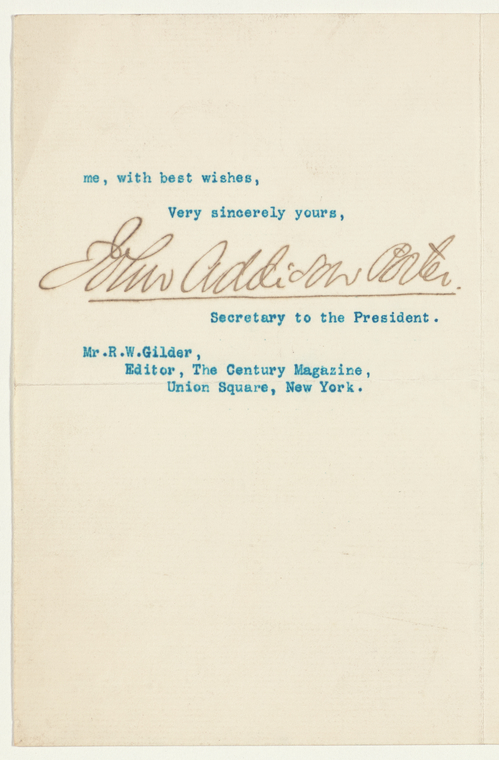 me, with best wishes,
Very sincerely yours,
John Addison Porter.
Secretary to the President.
Mr.R.W.Gilder,
Editor, The Century Magazine,
Union Square, New York.